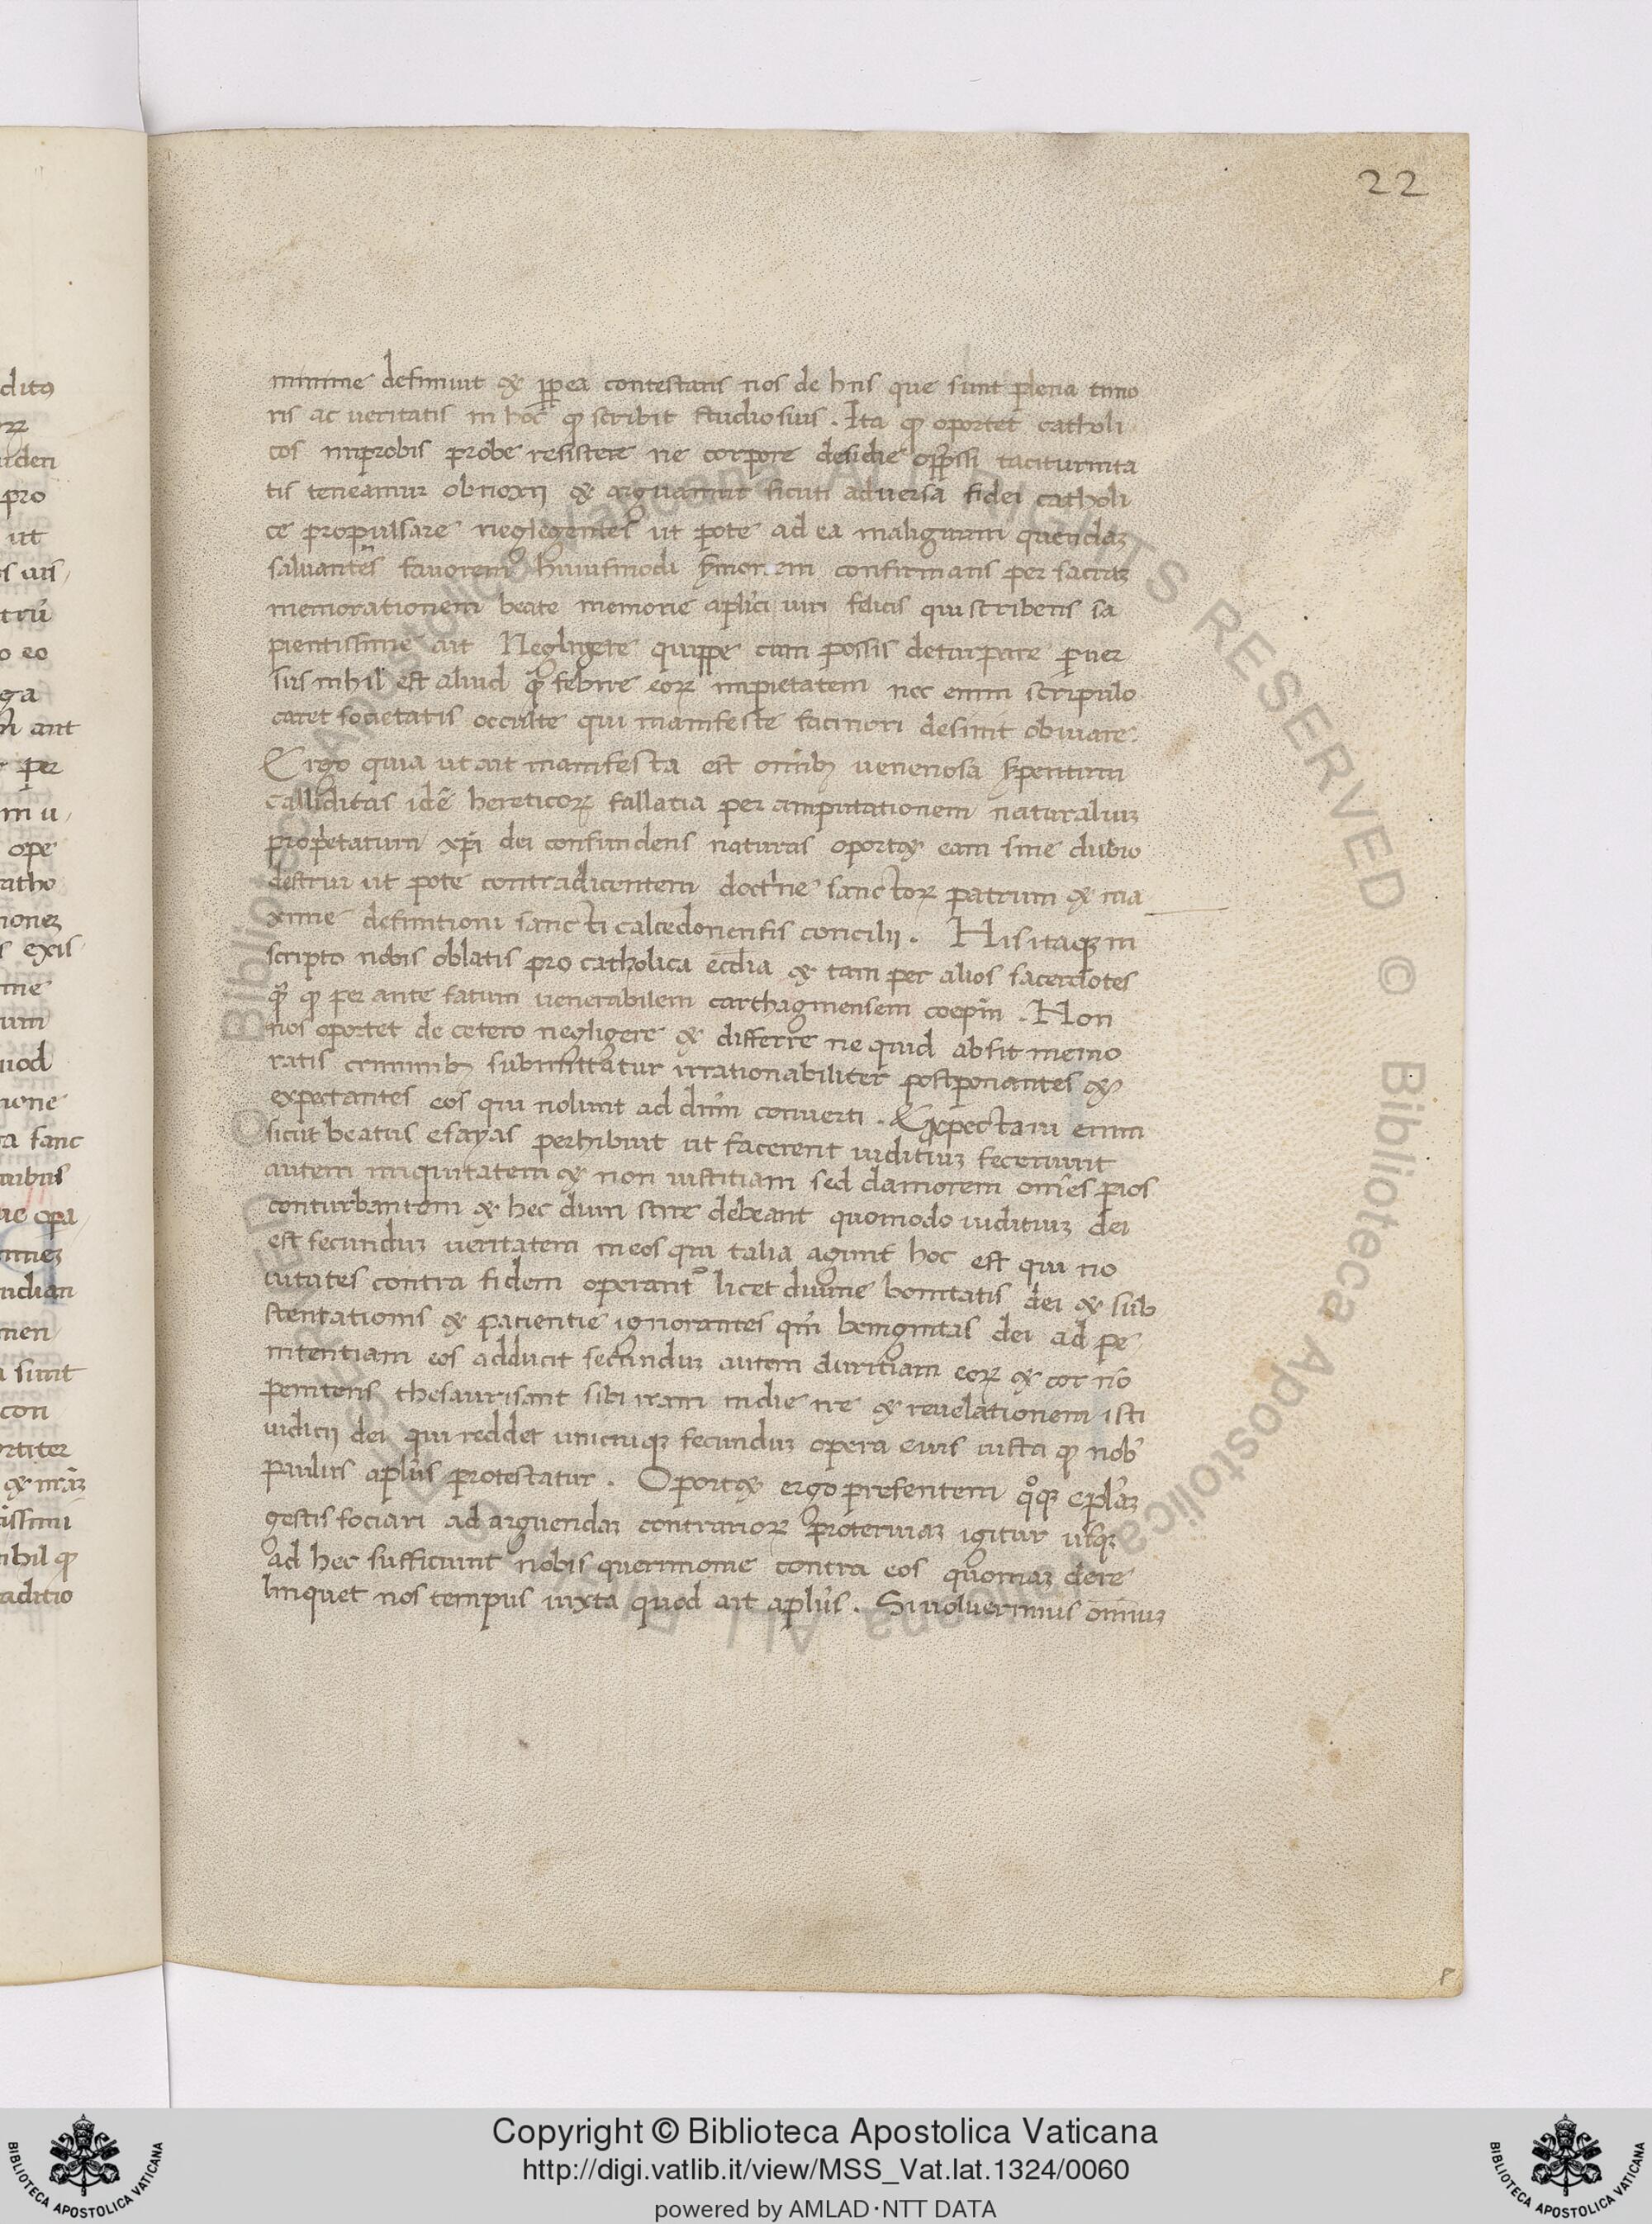 22
minime definiuit & ꝓpea contestans nos de hiis que sunt plena timo
ris ac ueritatis in hoc qꝫ scribit studiosius. Ita qꝫ oportet catholi
cos improbis probe resistere ne corpore desidie opp̄ssi taciturnita
tis teneamur obnoxij & arguamur sicuti aduersa fidei catholi
ce propulsare neglegentes ut pote ad ea malignum quendaꝫ
saluantes fauorem huiusmodi sermonem confirmans per sacraꝫ
memorationem beate memorie apl̄ici uiri felicis qui scribens sa
pientissime ait Negligere quippe cum possis deturpare ꝑuer
sus nihil est aliud qꝫ febrire eoꝝ impietatem nec enim scripulo
caret societatis occulte qui manifeste facinori desinit obuiare.
Ergo quia ut ait manifesta est omnibꝫ uenenosa serpentium
calliditas idē hereticoꝝ fallacia per amputationem naturaliuꝫ
proprietatum xp̄i dei confundens naturas oport& eam sine dubio
destrui ut pote contradicentem doctrine sanctoꝝ patrum & ma
xime definitioni sancti calcedonensis concilij. His itaqꝫ in
scripto nobis oblatis pro catholica eccl̄ia & tam per alios sacerdotes
qꝫ qꝫ per ante fatum uenerabilem carthaginensem coep̄m. Non
nos oportet de cetero negligere & differre ne quid absit memo
ratis criminibꝫ submittatur irrationabiliter postponantes &
expectantes eos qui nolunt ad dn̄m conuerti. Expectaui enim
sicut beatus esayas perhibuit ut facerent iuditiuꝫ fecerunt
autem iniquitatem & non iustitiam sed clamorem om̄es pios
conturbantem & hec dum scire debeant quomodo iuditiuꝫ dei
est secunduꝫ ueritatem in eos qui talia agunt hoc est qui no
uitates contra fidem operant᷒ licet diuine bonitatis dei & sub
stentationis & pacientie ignorantes qm̄ benignitas dei ad pe
nitentiam eos adducit secunduꝫ autem duritiam eoꝝ & cor nō
penitens thesaurisant sibi iram in die ire & reuelationem isti
iudicij dei qui reddet unicuiqꝫ secunduꝫ opera eius iusta qꝫ nob̄
paulus apl̄us protestatur. Oport& ergo presentem qͦqꝫ epl̄aꝫ
gestis sociari ad arguendaꝫ contrarioꝝ proteruiaꝫ igitur usqꝫ
ad hec sufficiunt nobis querimonie contra eos quoniaꝫ dere
linquet nos tempus iuxta quod ait apl̄us. Si uoluerimus omniuꝫ
Copyright © Biblioteca Apostolica Vaticana
http://digi.vatlib.it/view/MSS_Vat.lat.1324/0060
powered by AMLAD·NTT DATA
BIBLIOTECA APOSTOLICA VATICANA
BIBLIOTECA APOSTOLICA VATICANA